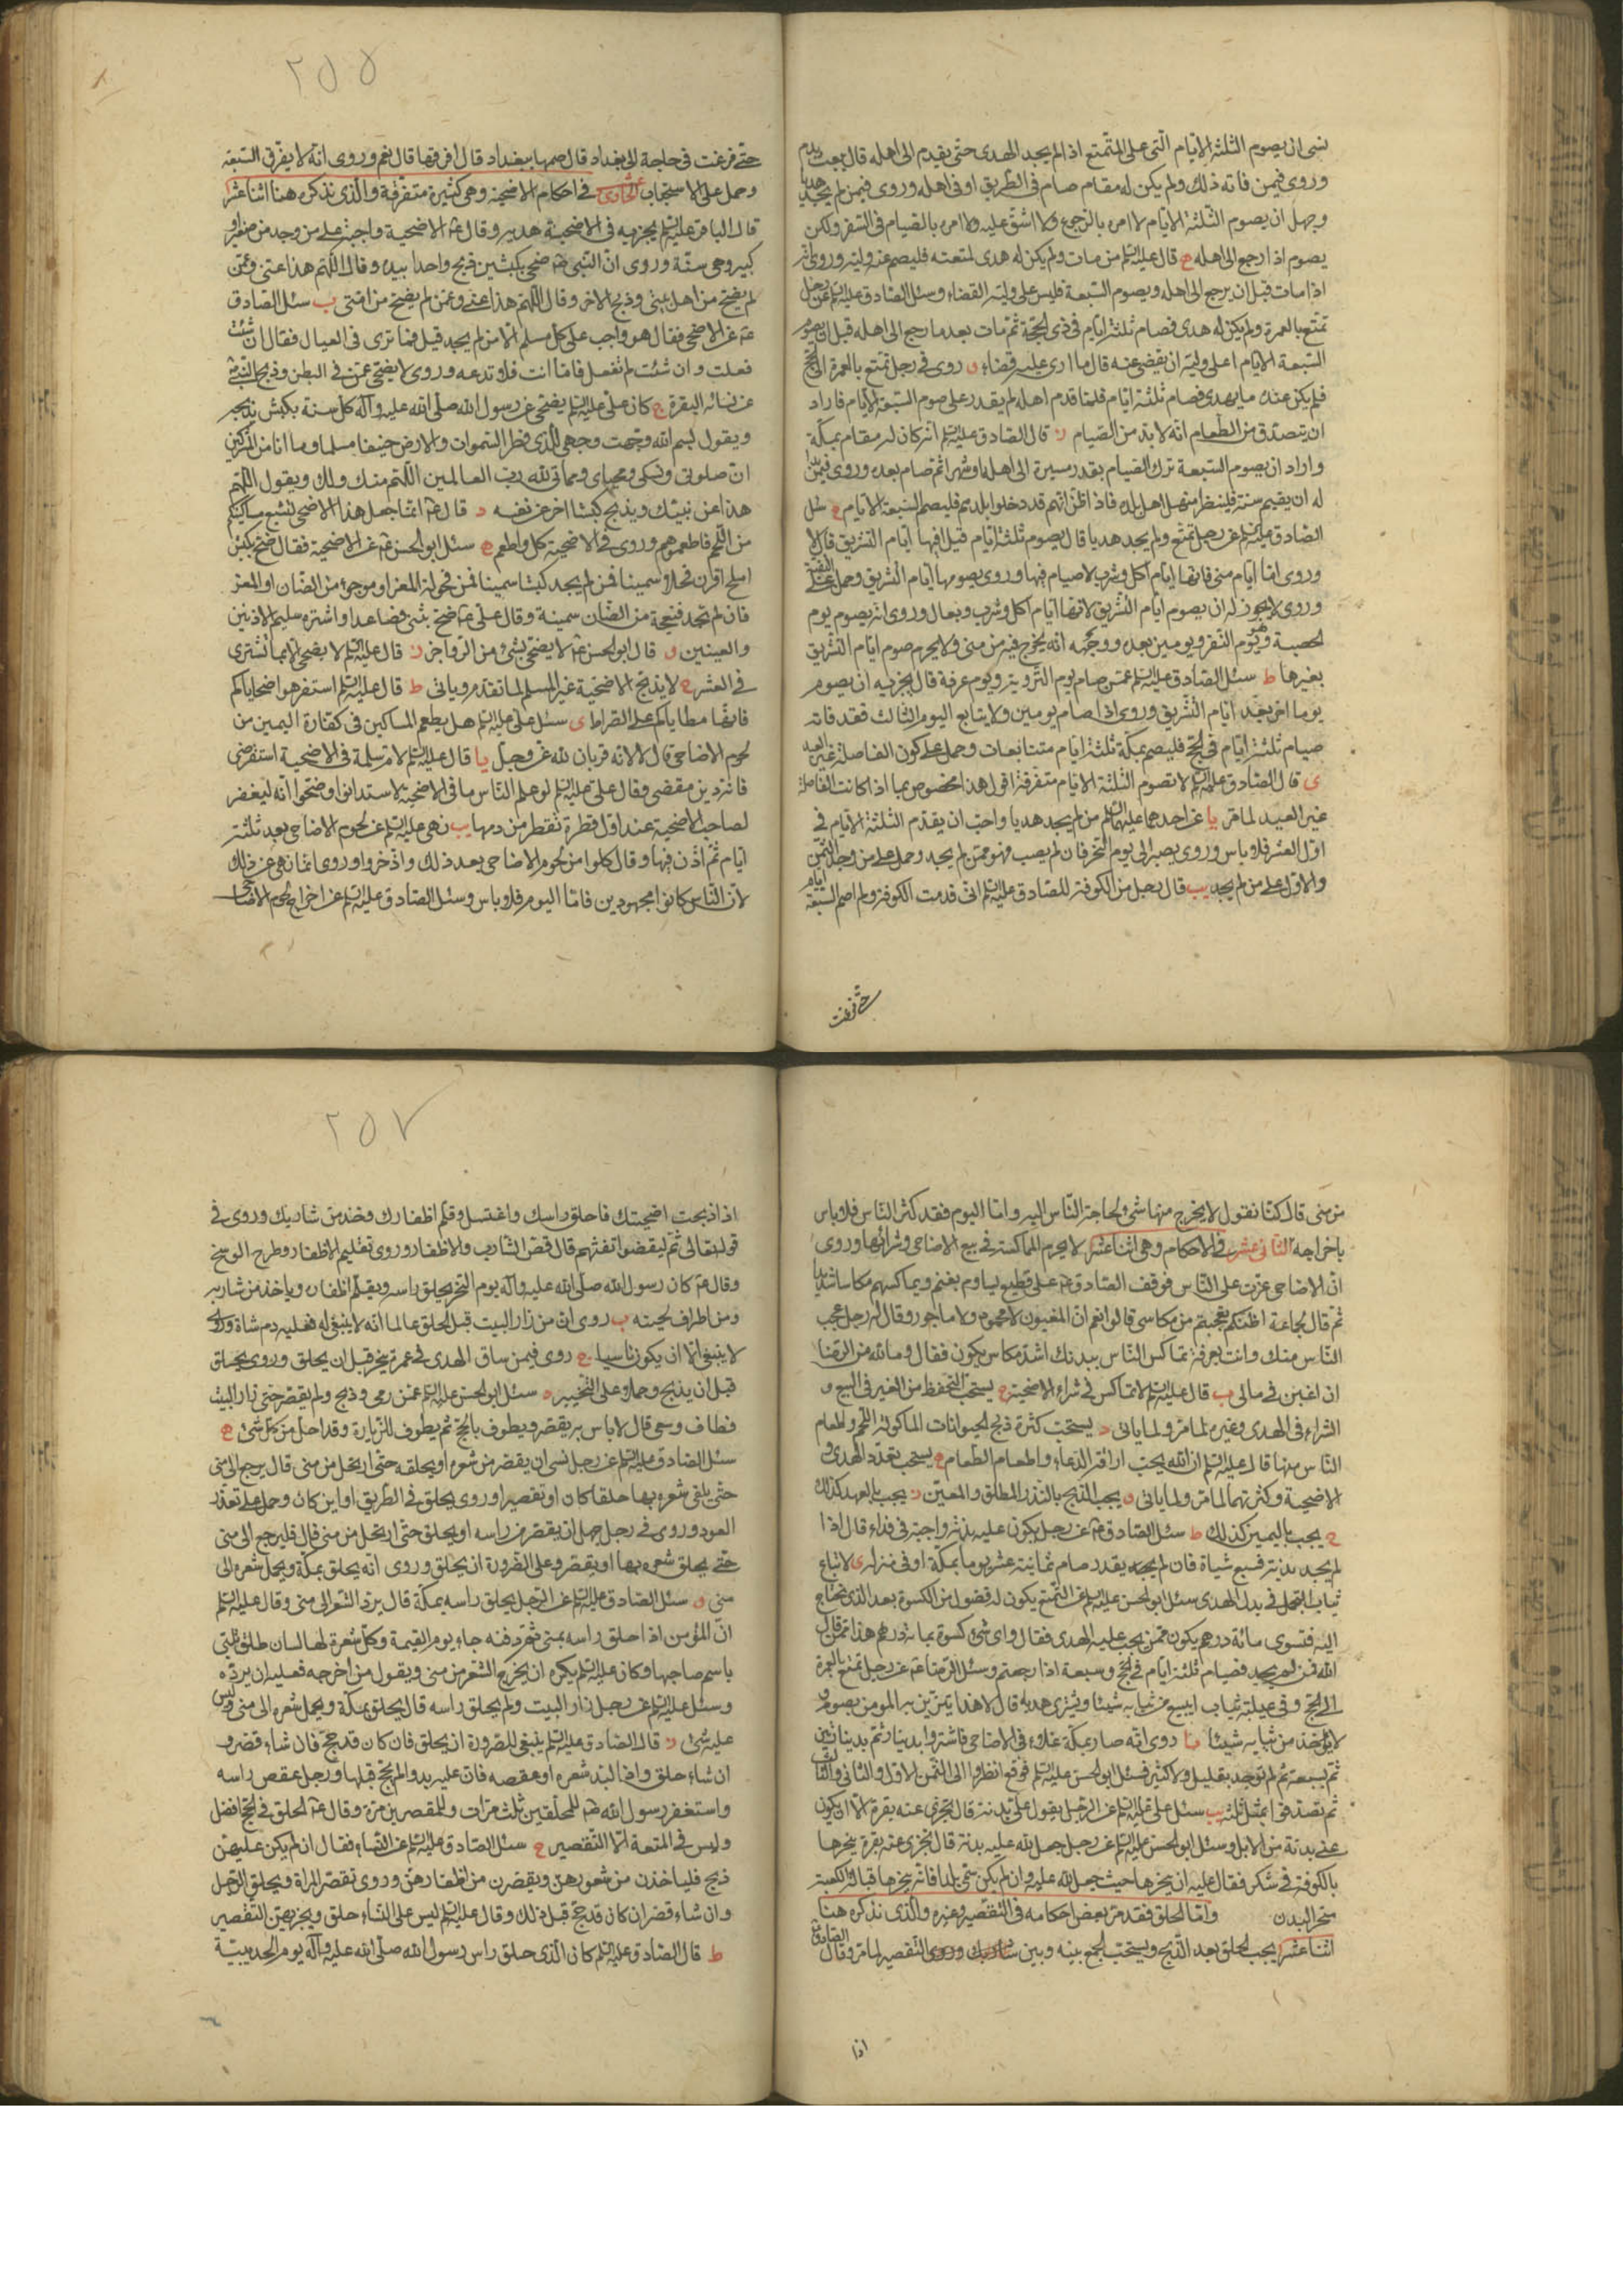 نسى ان يصوم الثلثة الايام التى على المتمتع اذا لم يجد الهدى حتى يقدم الى اهله قال يبعث بدم
وروى فيمن فاته ذلك ولم يكن له مقام صام فى الطريق او فى اهله وروى فيمن لم يجد هديا
وجهل ان يصوم الثلثة الايام لا امره بالرجوع ولا اشق عليه ولا امره بالصيام فى السفر ولكن
يصوم اذا رجع الى اهله ج قال عليه السلم من مات ولم يكن له هدى لمتعته فليصم عنه وليه وروى انه
اذا مات قبل ان يرجع الى اهله ويصوم السبعة فليس على وليه القضاء وسئل الصادق عليه السلم عن رجل
تمتع بالعمرة ولم يكن له هدى فصام ثلثة ايام فى ذى الحجة ثم مات بعد ما رجع الى اهله قبل ان يصوم
السبعة الايام اعلى وليه ان يقضى عنه قال ما ارى عليه قضاء و روى فى رجل تمتع بالعمرة الى الحج
فلم يكن عنده ما يهدى فصام ثلثة ايام فلما قدم اهله لم يقدر على صوم السبعة الايام فاراد
ان يتصدق من الطعام انه لا بد من الصيام ز قال الصادق عليه السلم انه كان له مقام بمكة
واراد ان يصوم السبعة ترك الصيام بقدر مسيره الى اهله او شهرا ثم صام بعده وروى فيمن بدا
له ان يقيم سنة فلينظر منهل اهل بلده فاذا ظن انهم قد دخلوا بلدهم فليصم السبعة الايام ح سئل
الصادق عليه السلم عن رجل تمتع ولم يجد هديا قال يصوم ثلثة ايام قيل افيها ايام التشريق قال لا
وروى انها ايام منى فانها ايام اكل وشرب لا صيام فيها وروى يصومها ايام التشريق وحمل على التقية
وروى لا يجوز له ان يصوم ايام التشريق لانها ايام اكل وشرب وبعال وروى انه يصوم يوم
الحصبة وهو يوم النفر ويومين بعده ووجهه انه يخرج فيه من منى ولا يحرم صوم ايام التشريق
بغيرها ط سئل الصادق عليه السلم عمن صام يوم التروية ويوم عرفة قال يجزيه ان يصوم
يوما اخر بعد ايام التشريق وروى اذا صام يومين ولا يتابع اليوم الثالث فقد فاته
صيام ثلثة ايام فى الحج فليصم بمكة ثلثة ايام متتابعات وحمل على كون الفاصلة غير العيد
ى قال الصادق عليه السلم لا تصوم الثلثة الايام متفرقة اقول هذا مخصوص بما اذا كانت الفاصلة
غير العيد لما مر يا عن احدهما عليهما السلم من لم يجد هديا واحب ان يقدم الثلثة الايام فى
اول العشر فلا باس وروى يصبر الى يوم النحر فان لم يصب فهو ممن لم يجد وحمل على من وجد الثمن
والاول على من لم يجد يب قال رجل من الكوفة للصادق عليه السلم انى قدمت الكوفة ولم اصم السبعة ايام
حتى فزعت
٢٥٥
حتى فزعت فى حاجة الى بغداد قال صمها ببغداد قال افرقها قال نعم وروى انه لا يفرق السبعة
وحمل على الاستحباب الحادى عشر فى احكام الاضحية وهى كثيرة متفرقة والذى نذكره هنا اثنا عشر
قال الباقر عليه السلم يجزيه فى الاضحية هديه وقال ع الاضحية واجبة على من وجد من صغير او
كبير وهى سنة وروى ان النبى ص ضحى بكبشين ذبح واحدا بيده وقال اللهم هذا عنى وعمن
لم يضح من اهل بيتى وذبح الاخر وقال اللهم هذا عنى وعمن لم يضح من امتى ب سئل الصادق
ع عن الاضحى فقال هو واجب على كل مسلم الا من لم يجد قيل فما ترى فى العيال فقال ان شئت
فعلت وان شئت لم تفعل فاما انت فلا تدعه وروى لا يضحى عمن فى البطن وذبح النبى ص
عن نسائه البقرة ج كان على عليه السلم يضحى عن رسول الله صلى الله عليه وآله كل سنة بكبش يذبحه
ويقول بسم الله وجهت وجهى للذى فطر السموات والارض حنيفا مسلما وما انا من المشركين
ان صلوتى ونسكى ومحياى ومماتى لله رب العالمين اللهم منك ولك ويقول اللهم
هذا عن نبيك ويذبح كبشا اخر عن نفسه د قال ع انما جعل هذا الاضحى لتشبع مساكينكم
من اللحم فاطعموهم وروى فى الاضحية كل واطعم ه سئل ابو الحسن ع عن الاضحية فقال ضح بكبش
املح اقرن فحلا سمينا فان لم يجد كبشا سمينا فمن فحولة المعز او موجوء من الضان او المعز
فان لم تجد فنعجة من الضان سمينة وقال على ع ضح بثنى فصاعدا واشتره سليم الاذنين
والعينين و قال ابو الحسن ع لا يضحى بشئ من الدواجن ز قال عليه السلم لا يضحى الا بما اشترى
فى العشر ح لا يذبح الاضحية غير المسلم لما تقدم وياتى ط قال عليه السلم استفرهوا ضحاياكم
فانها مطاياكم على الصراط ى سئل على عليه السلم هل يطعم المساكين فى كفارة اليمين من
لحوم الاضاحى قال لا لانه قربان لله عز وجل يا قال عليه السلم لام سلمة فى الاضحية استقرضى
فانه دين مقضى وقال على عليه السلم لو علم الناس ما فى الاضحية لاستدانوا وضحوا انه ليغفر
لصاحب الاضحية عند اول قطرة تقطر من دمها يب نهى عليه السلم عن لحوم الاضاحى بعد ثلثة
ايام ثم اذن فيها وقال كلوا من لحوم الاضاحى بعد ذلك وادخروا وروى انما نهى عن ذلك
لان الناس كانوا مجهودين فاما اليوم فلا باس وسئل الصادق عليه السلم عن اخراج لحوم الاضاحى
من منى قال كنا نقول لا يخرج منها شئ لحاجة الناس اليه واما اليوم فقد كثر الناس فلا باس
باخراجه الثانى عشر فى الاحكام وهى اثنا عشر ا لا يحرم المماكسة فى بيع الاضاحى وشرائها وروى
ان الاضاحى عزت على الناس فوقف الصادق ع على قطيع يساوم بغنم ويماكسهم مكاسا شديدا
ثم قال لجماعة اظنكم تعجبتم من مكاسى قالوا نعم ان المغبون لا محمود ولا ماجور وقال له رجل عجب
الناس منك وانت بعرفة تماكس الناس ببدنك اشد مكاس يكون فقال وما لله من الرضا
ان اغبن فى مالى ب قال عليه السلم لا تماكس فى شراء الاضحية ج يستحب التحفظ من الغبن فى البيع و
الشراء فى الهدى وغيره لما مر ولما ياتى د يستحب كثرة ذبح الحيوانات الماكولة اللحم واطعام
الناس منها قال عليه السلم ان الله يحب اراقة الدماء واطعام الطعام ه يستحب تعدد الهدى و
الاضحية وكثرتهما لما مر ولما ياتى و يجب الذبح بالنذر المطلق والمعين ز يجب بالعهد كذلك
ح يجب باليمين كذلك ط سئل الصادق ع عن رجل يكون عليه بدنة واجبة فى فداء قال اذا
لم يجد بدنة فسبع شياة فان لم يجد بقدر صام ثمانية عشر يوما بمكة او فى منزله ى لا تباع
ثياب التجمل فى بدل الهدى سئل ابو الحسن عليه السلم عن المتمتع يكون له فضول من الكسوة بعد الذى يحتاج
اليه فتسوى مائة درهم يكون ممن يجب عليه الهدى فقال واى شئ كسوة بمائة درهم هذا ممن قال
الله فمن لم يجد فصيام ثلثة ايام فى الحج وسبعة اذا رجعتم وسئل الرضا ع عن رجل تمتع بالعمرة
الى الحج وفى عيبته ثياب ايبيع من ثيابه شيئا ويشترى هديه قال لا هذا يتزين به المومن يصوم و
لا ياخذ من ثيابه شيئا يا روى انه صار بمكة غلاء فى الاضاحى فاشتروا بدينار ثم بدينارين
ثم بسبعة ثم لم توجد بقليل ولا كثير فسئل ابو الحسن عليه السلم فوقع انظروا الى الثمن الاول والثانى والثالث
ثم تصدقوا بمثل ثلثه يب سئل على عليه السلم عن الرجل يقول على بدنة قال تجزى عنه بقرة الا ان يكون
عنى بدنة من الابل وسئل ابو الحسن عليه السلم عن رجل جعل لله عليه بدنة قال تجزى عنه بقرة ينحرها
بالكوفة فى شكر فقال عليه ان ينحرها حيث جعل لله عليه وان لم يكن سمى بلدا فانه ينحرها قبالة الكعبة
منحر البدن واما الحلق فقد مر بعض احكامه فى التقصير وغيره والذى نذكره هنا
اثنا عشر ا يجب الحلق بعد الذبح ويستحب الجمع بينه وبين التقصير لما مر وقال الصادق ع
اذا
٢٥٧
اذا ذبحت اضحيتك فاحلق راسك واغتسل وقلم اظفارك وخذ من شاربك وروى فى
قوله تعالى ثم ليقضوا تفثهم قال قص الشارب والاظفار وروى تقليم الاظفار وطرح الوسخ
وقال ع كان رسول الله صلى الله عليه وآله يوم النحر يحلق راسه ويقلم اظفاره وياخذ من شاربه
ومن اطراف لحيته ب روى ان من زار البيت قبل الحلق عالما انه لا ينبغى له فعليه دم شاة وروى
لا ينبغى الا ان يكون ناسيا ج روى فيمن ساق الهدى فى عمرة ينحر قبل ان يحلق وروى يحلق
قبل ان يذبح وحملا على التخيير د سئل ابو الحسن عليه السلم عمن رمى وذبح ولم يقصر حتى زار البيت
فطاف وسعى قال لا باس به يقصر ويطوف بالحج ثم يطوف للزيارة وقد احل من كل شئ ه
سئل الصادق عليه السلم عن رجل نسى ان يقصر من شعره او يحلقه حتى ارتحل من منى قال يرجع الى منى
حتى يلقى شعره بها حلقا كان او تقصيرا وروى يحلق فى الطريق او اين كان وحمل على تعذر
العود وروى فى رجل جهل ان يقصر من راسه او يحلق حتى ارتحل من منى قال فليرجع الى منى
حتى يحلق شعره بها او يقصر وعلى الصرورة ان يحلق وروى انه يحلق بمكة ويحمل شعره الى
منى و سئل الصادق عليه السلم عن الرجل يحلق راسه بمكة قال يرد الشعر الى منى وقال عليه السلم
ان المؤمن اذا حلق راسه بمنى ثم دفنه جاء يوم القيمة وكل شعرة لها لسان طلق تلبى
باسم صاحبها وكان عليه السلم يكره ان يخرج الشعر من منى ويقول من اخرجه فعليه ان يرده
وسئل عليه السلم عن رجل زار البيت ولم يحلق راسه قال يحلق بمكة ويحمل شعره الى منى وليس
عليه شئ ز قال الصادق عليه السلم ينبغى للصرورة ان يحلق فان كان قد حج فان شاء قصر و
ان شاء حلق واذا لبد شعره او عقصه فان عليه بدو الم يحج قبلها ورجل عقص راسه
واستغفر رسول الله ص للمحلقين ثلث مرات وللمقصرين مرة وقال ع الحلق فى الحج افضل
وليس فى المتعة الا التقصير ح سئل الصادق عليه السلم عن النساء فقال ان لم يكن عليهن
ذبح فلياخذن من شعورهن ويقصرن من اظفارهن وروى تقصر المراة ويحلق الرجل
وان شاء قصر ان كان قد حج قبل ذلك وقال عليه السلم ليس على النساء حلق ويجزيهن التقصير
ط قال الصادق عليه السلم كان الذى حلق راس رسول الله صلى الله عليه وآله يوم الحديبية